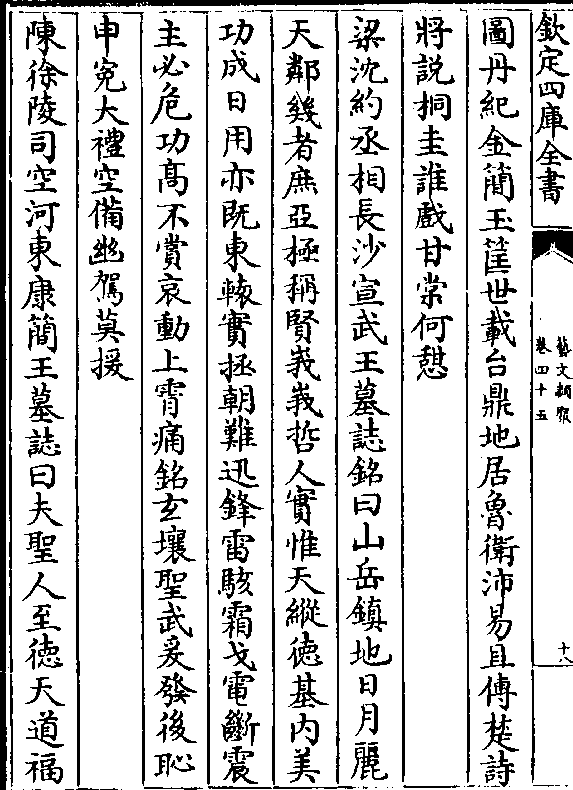 欽定四庫全書
藝文類聚
卷四十五
十八
圖丹紀金蕳玉筐世載台鼎地居魯衛沛易且傳楚詩
將説桐圭誰戲甘棠何憇
梁沈約丞相長沙宣武王墓誌銘曰山岳鎮地日月麗
天鄰幾者庶亞極稱賢峩峩哲人實惟天縱徳基内美
功成日用亦既東轅實拯朝難迅鋒雷駭霜戈電斷震
主必危功髙不賞哀動上霄痛銘玄壤聖武爰發後恥
申寃大禮空備幽駕莫援
陳徐陵司空河東康蕳王墓誌曰夫聖人至徳天道福